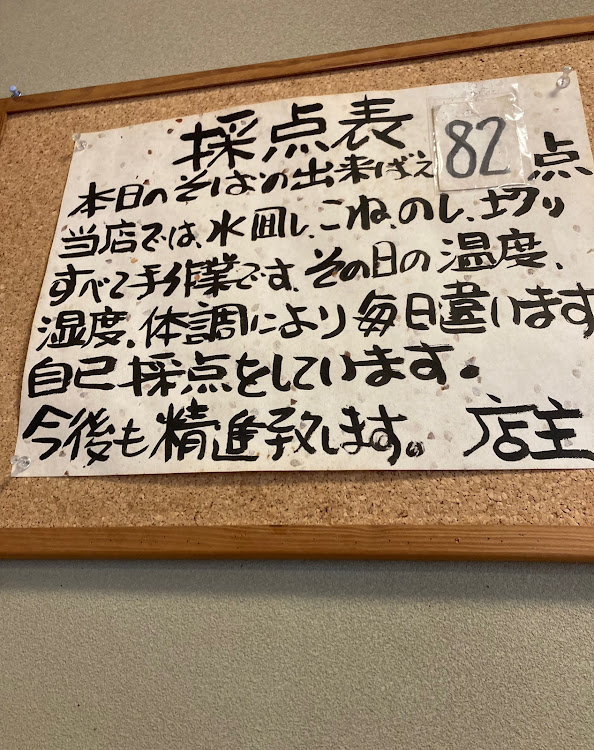 採点表
本日のそばの出来ばえ 82 点
当店では、水回し、こね、のし、切り
すべて手作業です、その日の温度、
湿度、体調により毎日違います
自己採点をしています。
今後も精進致します。 店主